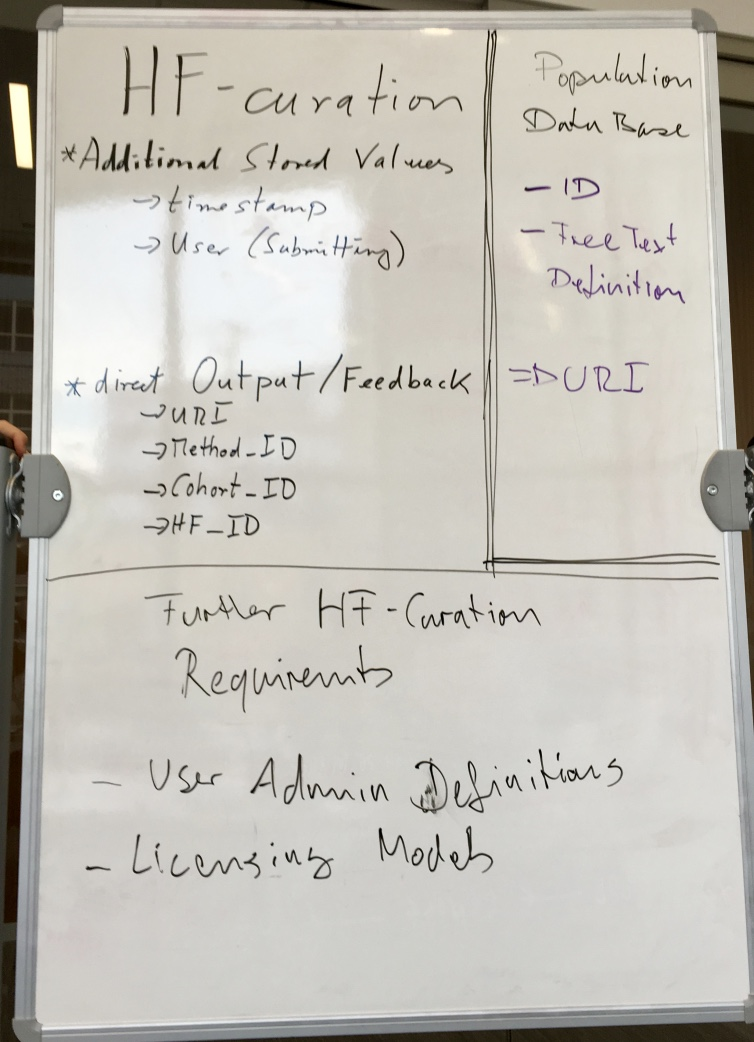 HF-curation
*Additional Stored Values
→ timestamp
→ User (Submitting)
* direct Output/Feedback
→ URI
→ Method_ID
→ Cohort_ID
→ HF_ID
Population
Data Base
- ID
- Free Text
Definition
⇒ URI
Further HF-Curation
Requiremnts
- User Admin Definitions
- Licensing Models